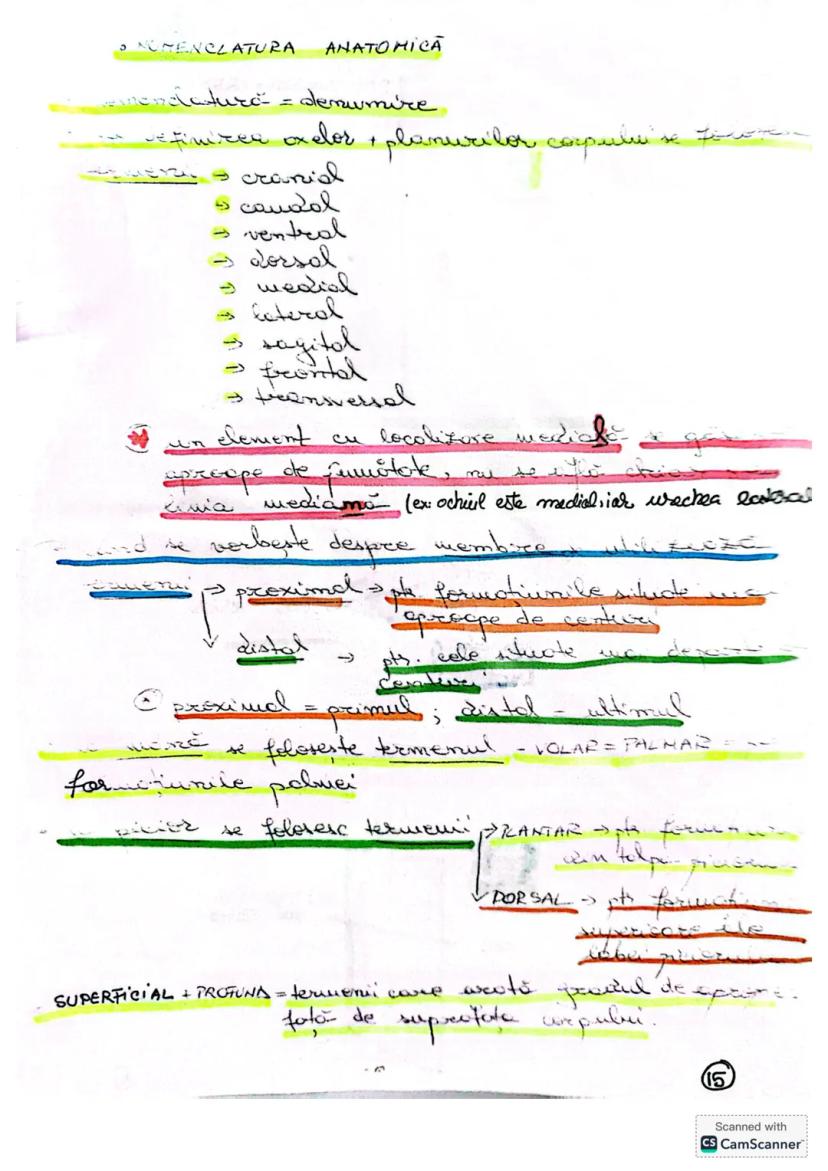 NOMENCLATURA ANATOMICĂ
= denumire
definirea axelor + planurilor corpului se
termenii → cranial
→ caudal
→ ventral
→ dorsal
→ medial
→ lateral
→ sagital
→ frontal
→ transversal
un element cu localizare medială se
aproape de jumătate, nu se află chiar
linia mediană (ex: ochiul este medial, iar urechea lateral
se vorbește despre membre, utilizează
termenii → proximal → ptr. formațiunile situate
aproape de centuri
distal → ptr. cele situate
centuri
proximal = primul ; distal = ultimul
mână se folosește termenul - VOLAR = PALMAR =
formațiunile palmei
picior se folosesc termenii → PLANTAR → ptr
din talpa
DORSAL → ptr
superioare ale
labei piciorului
SUPERFICIAL + PROFUND = termenii care arată gradul de
față de suprafața corpului.
15
Scanned with
CS CamScanner